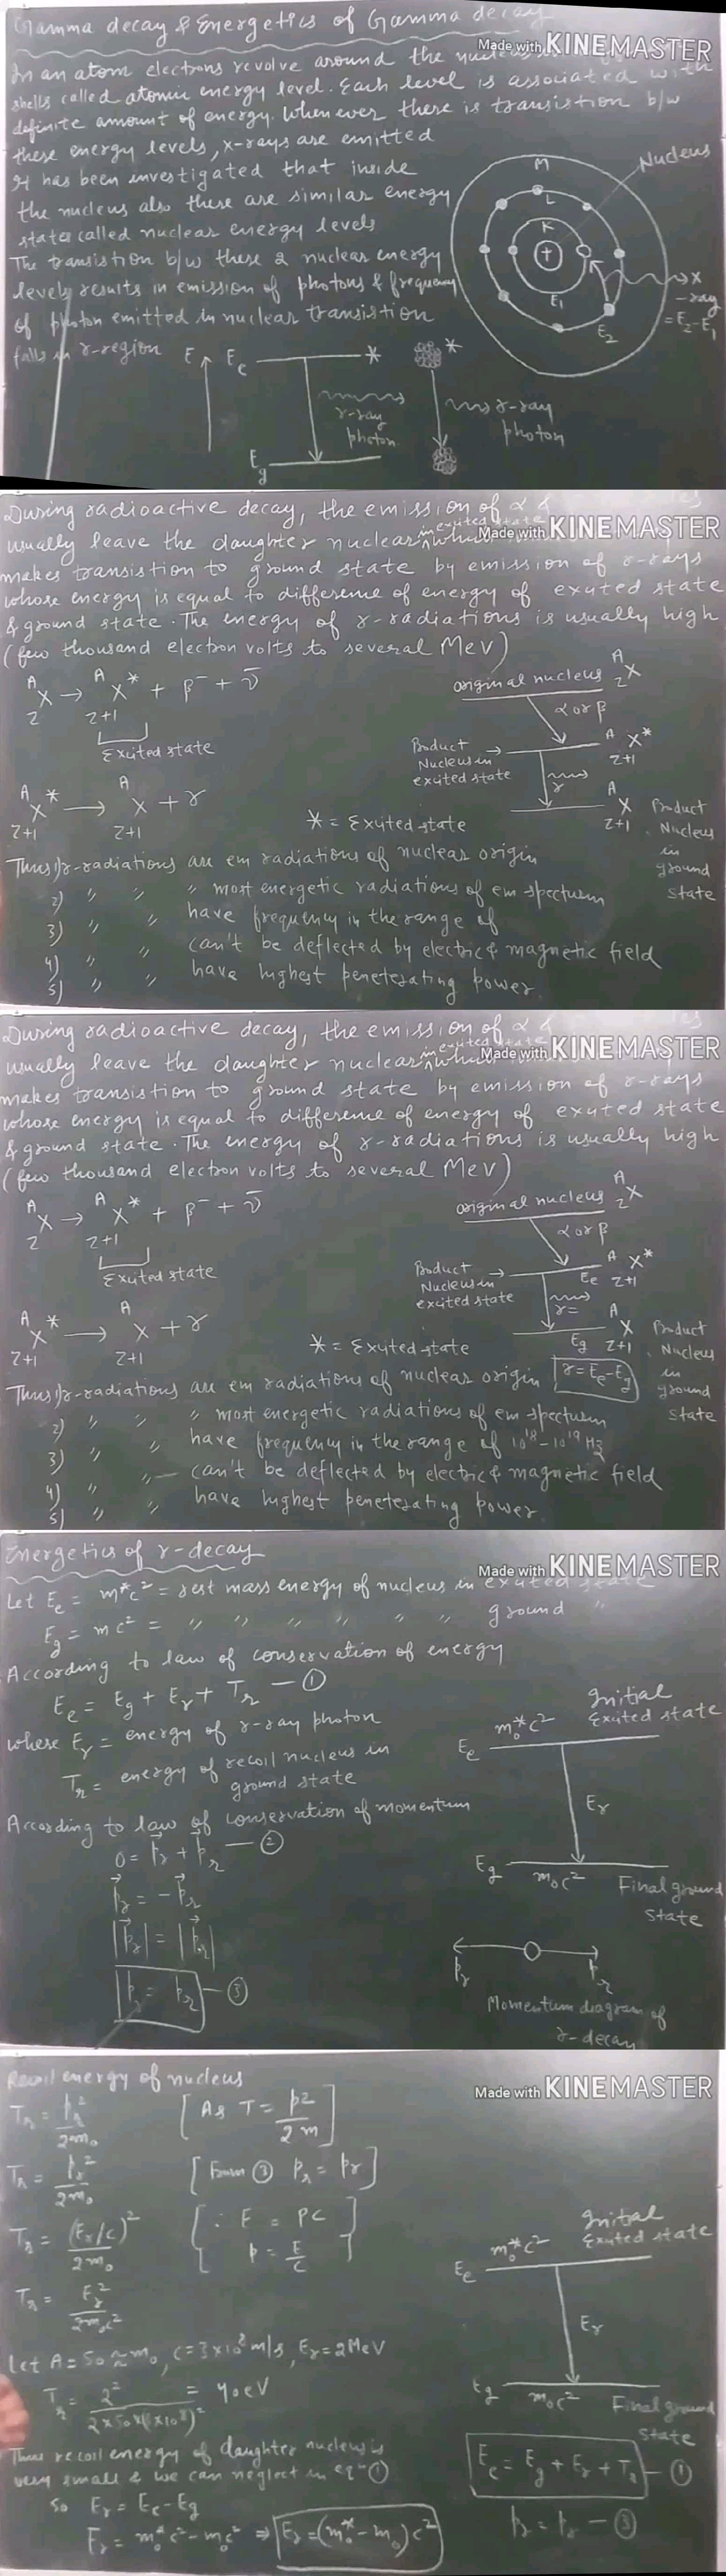 Gamma decay & Energetics of Gamma decay
Made with KINEMASTER
In an atom electrons revolve around the
shells called atomic energy level. Each level is associated with
definite amount of energy. Whenever there is transistion b/w
these energy levels, x-rays are emitted
It has been investigated that inside
the nucleus also there are similar energy
states called nuclear energy levels
The transistion b/w these 2 nuclear energy
levels results in emission of photons & frequency
of photon emitted in nuclear transistion
falls in γ-region
Nucleus
M
L
K
+
E1
E2
X
-ray
= E2-E1
E
Ee
*
γ-ray
photon
Eg
*
γ-ray
photon
During radioactive decay, the emission of α &
Made with KINEMASTER
usually leave the daughter nuclear in exited state which
makes transistion to ground state by emission of γ-rays
whose energy is equal to difference of energy of exyted state
& ground state. The energy of γ-radiations is usually high
(few thousand electron volts to several MeV)
A Z X → A Z+1 X* + β⁻ + ν̄
Exited state
original nucleus A Z X
α or β
Product → A Z+1 X*
Nucleus in
exyted state
γ
A Z+1 X* → A Z+1 X + γ
* = Exyted state
A Z+1 X Product
Nucleus
in
ground
state
Thus 1) γ-radiations are em radiations of nuclear origin
2) " " " most energetic radiations of em spectum
3) " " have frequency in the range of
4) " " can't be deflected by electric & magnetic field
5) " " have highest peneterating power
During radioactive decay, the emission of α &
Made with KINEMASTER
usually leave the daughter nuclear in exited state which
makes transistion to ground state by emission of γ-rays
whose energy is equal to difference of energy of exyted state
& ground state. The energy of γ-radiations is usually high
(few thousand electron volts to several MeV)
A Z X → A Z+1 X* + β⁻ + ν̄
Exited state
original nucleus A Z X
α or β
Product → Ee A Z+1 X*
Nucleus in
exyted state
γ=
A Z+1 X* → A Z+1 X + γ
* = Exyted state
Eg A Z+1 X Product
Nucleus
in
ground
state
Thus 1) γ-radiations are em radiations of nuclear origin
γ = Ee-Eg
2) " " " most energetic radiations of em spectum
3) " " have frequency in the range of 10¹⁸-10¹⁹ Hz
4) " " can't be deflected by electric & magnetic field
5) " " have highest peneterating power
Energetics of γ-decay
Made with KINEMASTER
Let Ee = m*c² = rest mass energy of nucleus in exyted state
Eg = mc² = " " " " " " ground "
According to law of conservation of energy
Ee = Eg + Eγ + Tr — ①
where Eγ = energy of γ-ray photon
Tr = energy of recoil nucleus in
ground state
According to law of conservation of momentum
0 = pγ + pr — ②
pγ = -pr
|pγ| = |pr|
pγ = pr — ③
Initial
Exyted state
m₀*c²
Ee
Eγ
Eg
m₀c²
Final ground
state
pγ
pr
Momentum diagram of
γ-decay
Recoil energy of nucleus
Made with KINEMASTER
Tr = pr²/2m₀ [As T = p²/2m]
Tr = pγ²/2m₀ [From ③ pr = pγ]
Tr = (Eγ/c)²/2m₀ [∵ E = PC
p = E/c]
Tr = Eγ²/2m₀c²
Let A = 50 ≈ m₀, c = 3×10⁸ m/s, Eγ = 2MeV
Tr = 2²/2×50×(3×10⁸)² = 40eV
Thus recoil energy of daughter nucleus is
very small & we can neglect in eqⁿ ①
So Eγ = Ee - Eg
Eγ = m₀*c² - m₀c² ⇒ Eγ = (m₀* - m₀)c²
Initial
Exyted state
m₀*c²
Ee
Eγ
Eg
m₀c²
Final ground
state
Ee = Eg + Eγ + Tr — ①
pr = pγ — ③